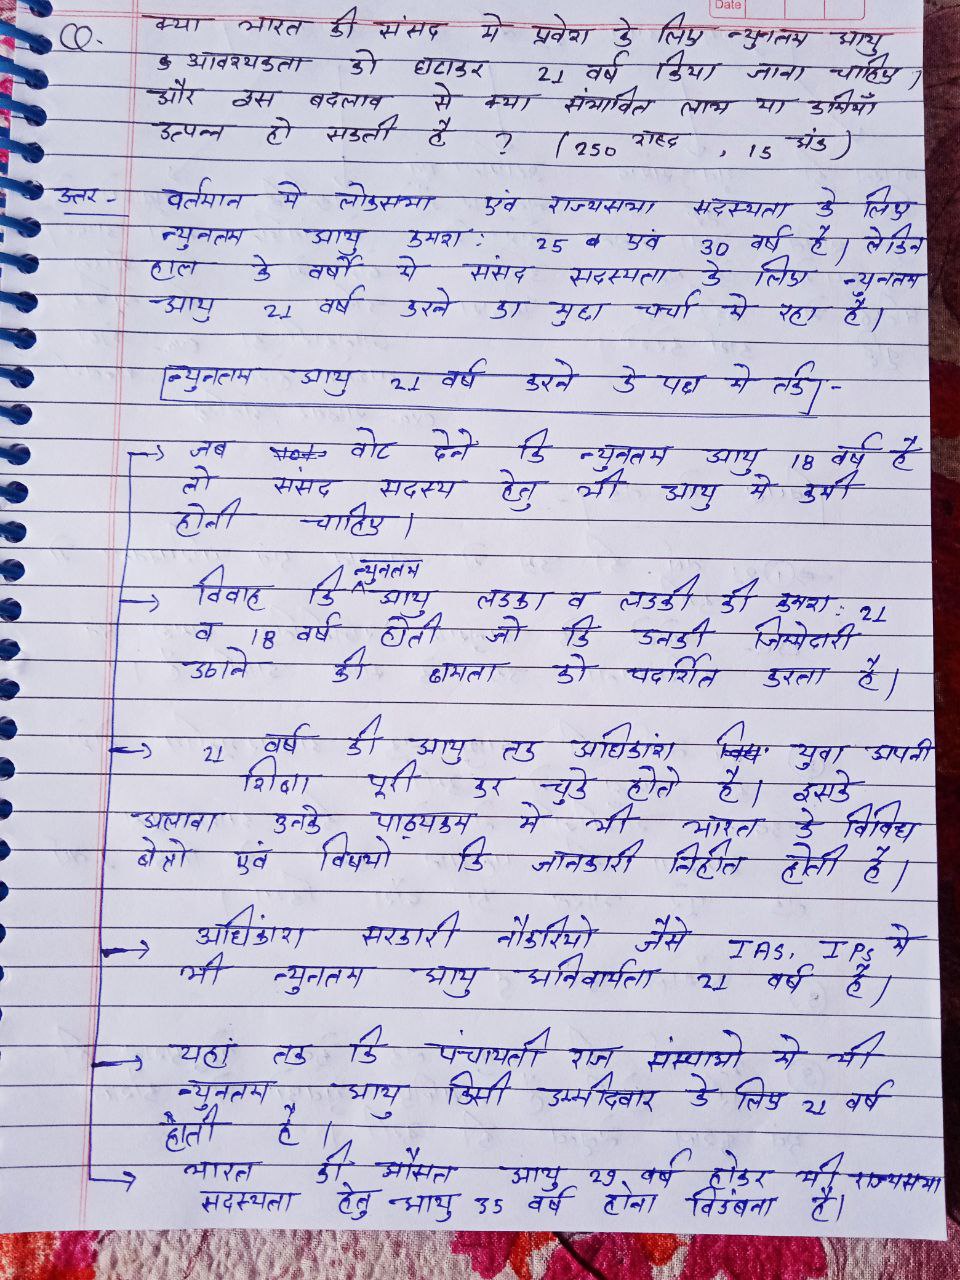 Date
Q. क्या भारत की संसद मे प्रवेश के लिए न्युनतम आयु
क आवश्यकता को घटाकर 21 वर्ष किया जाना चाहिए।
और इस बदलाव से क्या संभावित लाभ या कमियाँ
उत्पन्न हो सकती है ? (250 शब्द , 15 अंक)
उत्तर - वर्तमान मे लोकसभा एवं राज्यसभा सदस्यता के लिए
न्युनतम आयु क्रमश: 25 व एवं 30 वर्ष है। लेकिन
हाल के वर्षों मे संसद सदस्यता के लिए न्यूनतम
आयु 21 वर्ष करने का मुद्दा चर्चा मे रहा है।
न्युनतम आयु 21 वर्ष करने के पक्ष मे तर्क -
→ जब वोट देने कि न्युनतम आयु 18 वर्ष है
तो संसद सदस्य हेतु भी आयु मे कमी
होनी चाहिए।
→ विवाह कि न्युनतम आयु लडका व लडकी की क्रमश: 21
व 18 वर्ष होती जो कि उनकी जिम्मेदारी
उठाने की क्षमता को प्रदर्शित करता है।
→ 21 वर्ष की आयु तक अधिकांश युवा अपनी
शिक्षा पूरी कर चुके होते है। इसके
अलावा उनके पाठ्यक्रम मे भी भारत के विविध
क्षेत्रो एवं विषयो कि जानकारी निहीत होती है।
→ अधिकांश सरकारी नौकरियो जैसे IAS, IPS मे
भी न्युनतम आयु अनिवार्यता 21 वर्ष है।
→ यहां तक कि पंचायती राज संस्थाओ मे भी
न्युनतम आयु किसी उम्मीदवार के लिए 21 वर्ष
होती है।
→ भारत की औसत आयु 29 वर्ष होकर भी राज्यसभा
सदस्यता हेतु आयु 35 वर्ष होना विडंबना है।